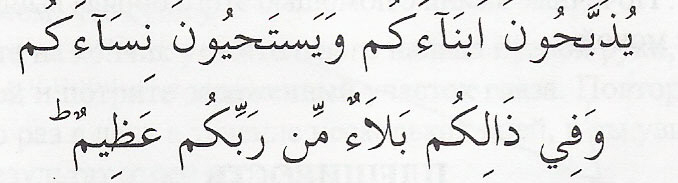 يُذبَّحُونَ ابنَآءكُم وَيَستَحيُونَ نِسَآءكُم
وَفِي ذَالِكُم بَلَاَءٌ مِّن رَبِّكُم عَظِيمٌ ط